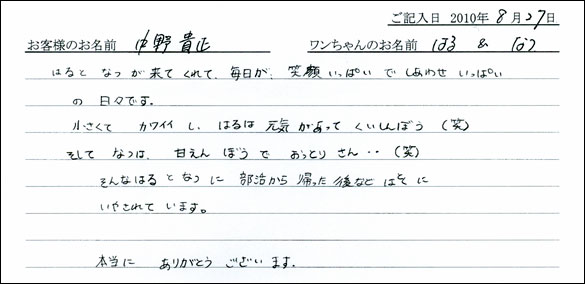 ご記入日 2010年 8月27日
お客様のお名前 中野 貴正 ワンちゃんのお名前 はる & なつ
はると なつが来てくれて、毎日が、笑顔いっぱいで しあわせ いっぱい
の 日々です。
小さくて カワイイ し、はるは 元気があって くいしんぼう (笑)
そして なつは、甘えん ぼう で おっとり さん・・(笑)
そんなはる と なつ に 部活から 帰った 後など ほんとに
いやされて います。
本当に ありがとう ございます.